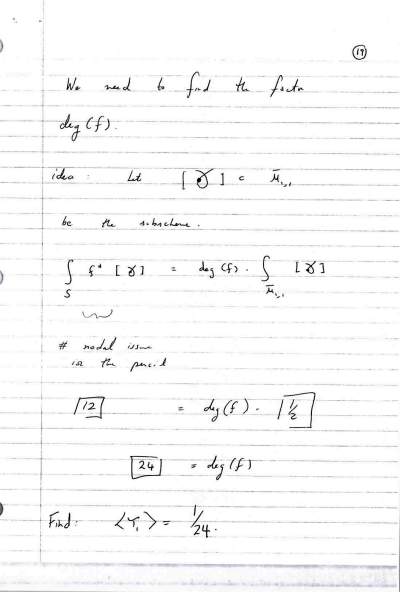 (19)
We need to find the factor
deg(f).
idea: Let [ ] ⊂ M̄₁,₁
be the subscheme.
∫_S f* [ ] = deg(f) · ∫_M̄₁,₁ [ ]
# nodal
in the pencil
12 = deg(f) · 1/2
24 = deg(f)
Find: ⟨τ₁⟩ = 1/24.